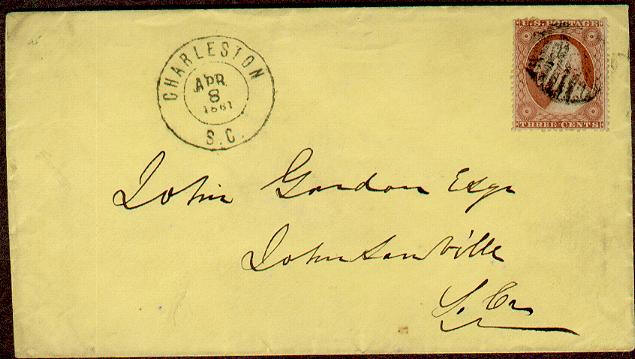 U.S. POSTAGE
THREE CENTS
CHARLESTON
APR
8
1861
S.C.
John Gordon Esqr
Johnsonville
So. Ca